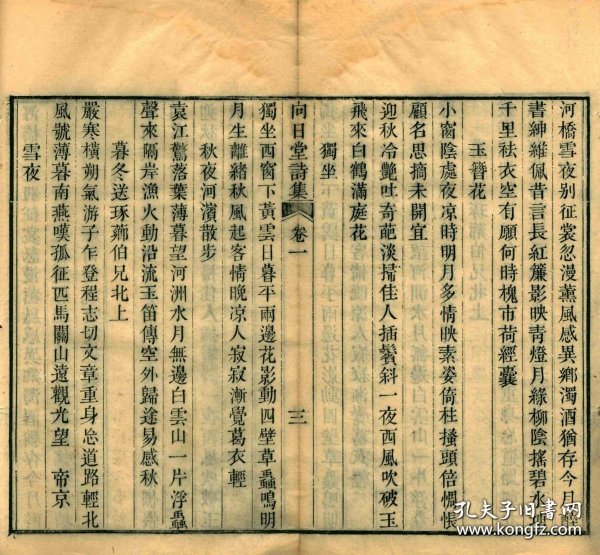 河橋雪夜别征裳忽漫薰風感異鄉濁酒猶存今月
書紳維佩昔言長紅簾影映青燈月綠柳陰搖碧水
千里袪衣空有願何時槐市荷經囊
玉簪花
小窗陰處夜凉時明月多情映素姿倚柱搔頭倍惆悵
顧名思摘未開宜
迎秋冷艷吐奇葩淡掃佳人插鬢斜一夜西風吹破玉
飛來白鶴滿庭花
獨坐
獨坐西窗下黃雲日暮平雨邊花影動四壁草蟲鳴明
月生離緒秋風起客情晚凉人寂寂漸覺葛衣輕
向日堂詩集 卷一 三
秋夜河濱散步
袁江驚落葉薄暮望河洲水月無邊白雲山一片浮蟲
聲來隔岸漁火動沿流玉笛傳空外歸途易感秋
暮冬送琢薌伯兄北上
嚴寒橫朔氣游子乍登程志切文章重身忘道路輕北
風號薄暮南燕嘆孤征匹馬關山遠觀光望 帝京
雪夜
孔夫子旧书网
www.kongfz.com